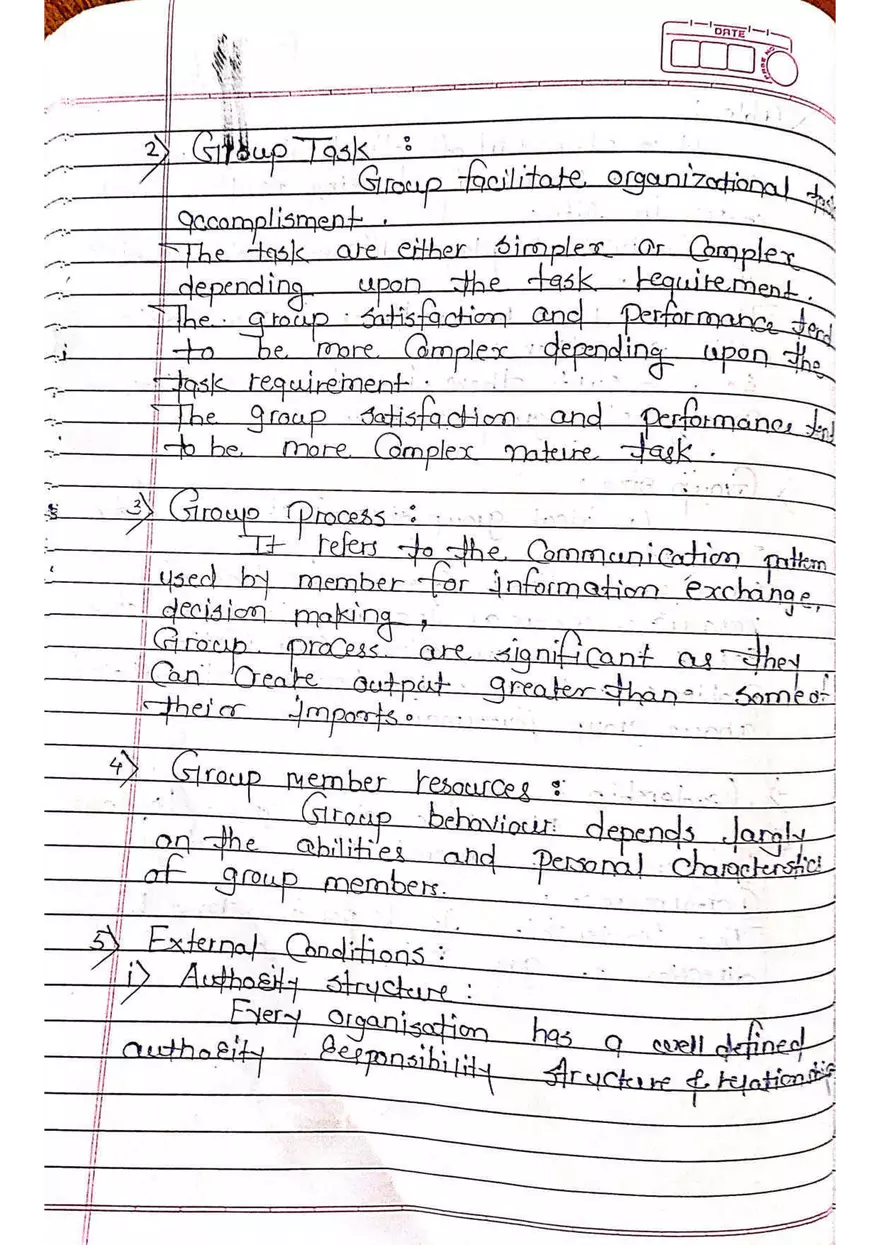 DATE
PAGE NO
2) Group Task :
Group facilitate organizational
accomplisment .
The task are either simplex or Complex
depending upon the task requirement.
The group satisfaction and performance tend
to be more Complex depending upon the
task requirement .
The group satisfaction and performance tend
to be more Complex nateure task .
3) Group Process :
It refers to the Communication pattern
used by member for information exchange,
decision making ,
Group process are significant as they
Can Create output greater than someof
their imports.
4) Group member resources :
Group behaviour depends largly
on the abilities and personal Characterstics
of group members.
5) External Conditions :
i) Authority structure :
Every organisation has a well defined
authority Responsibility structure & relationship